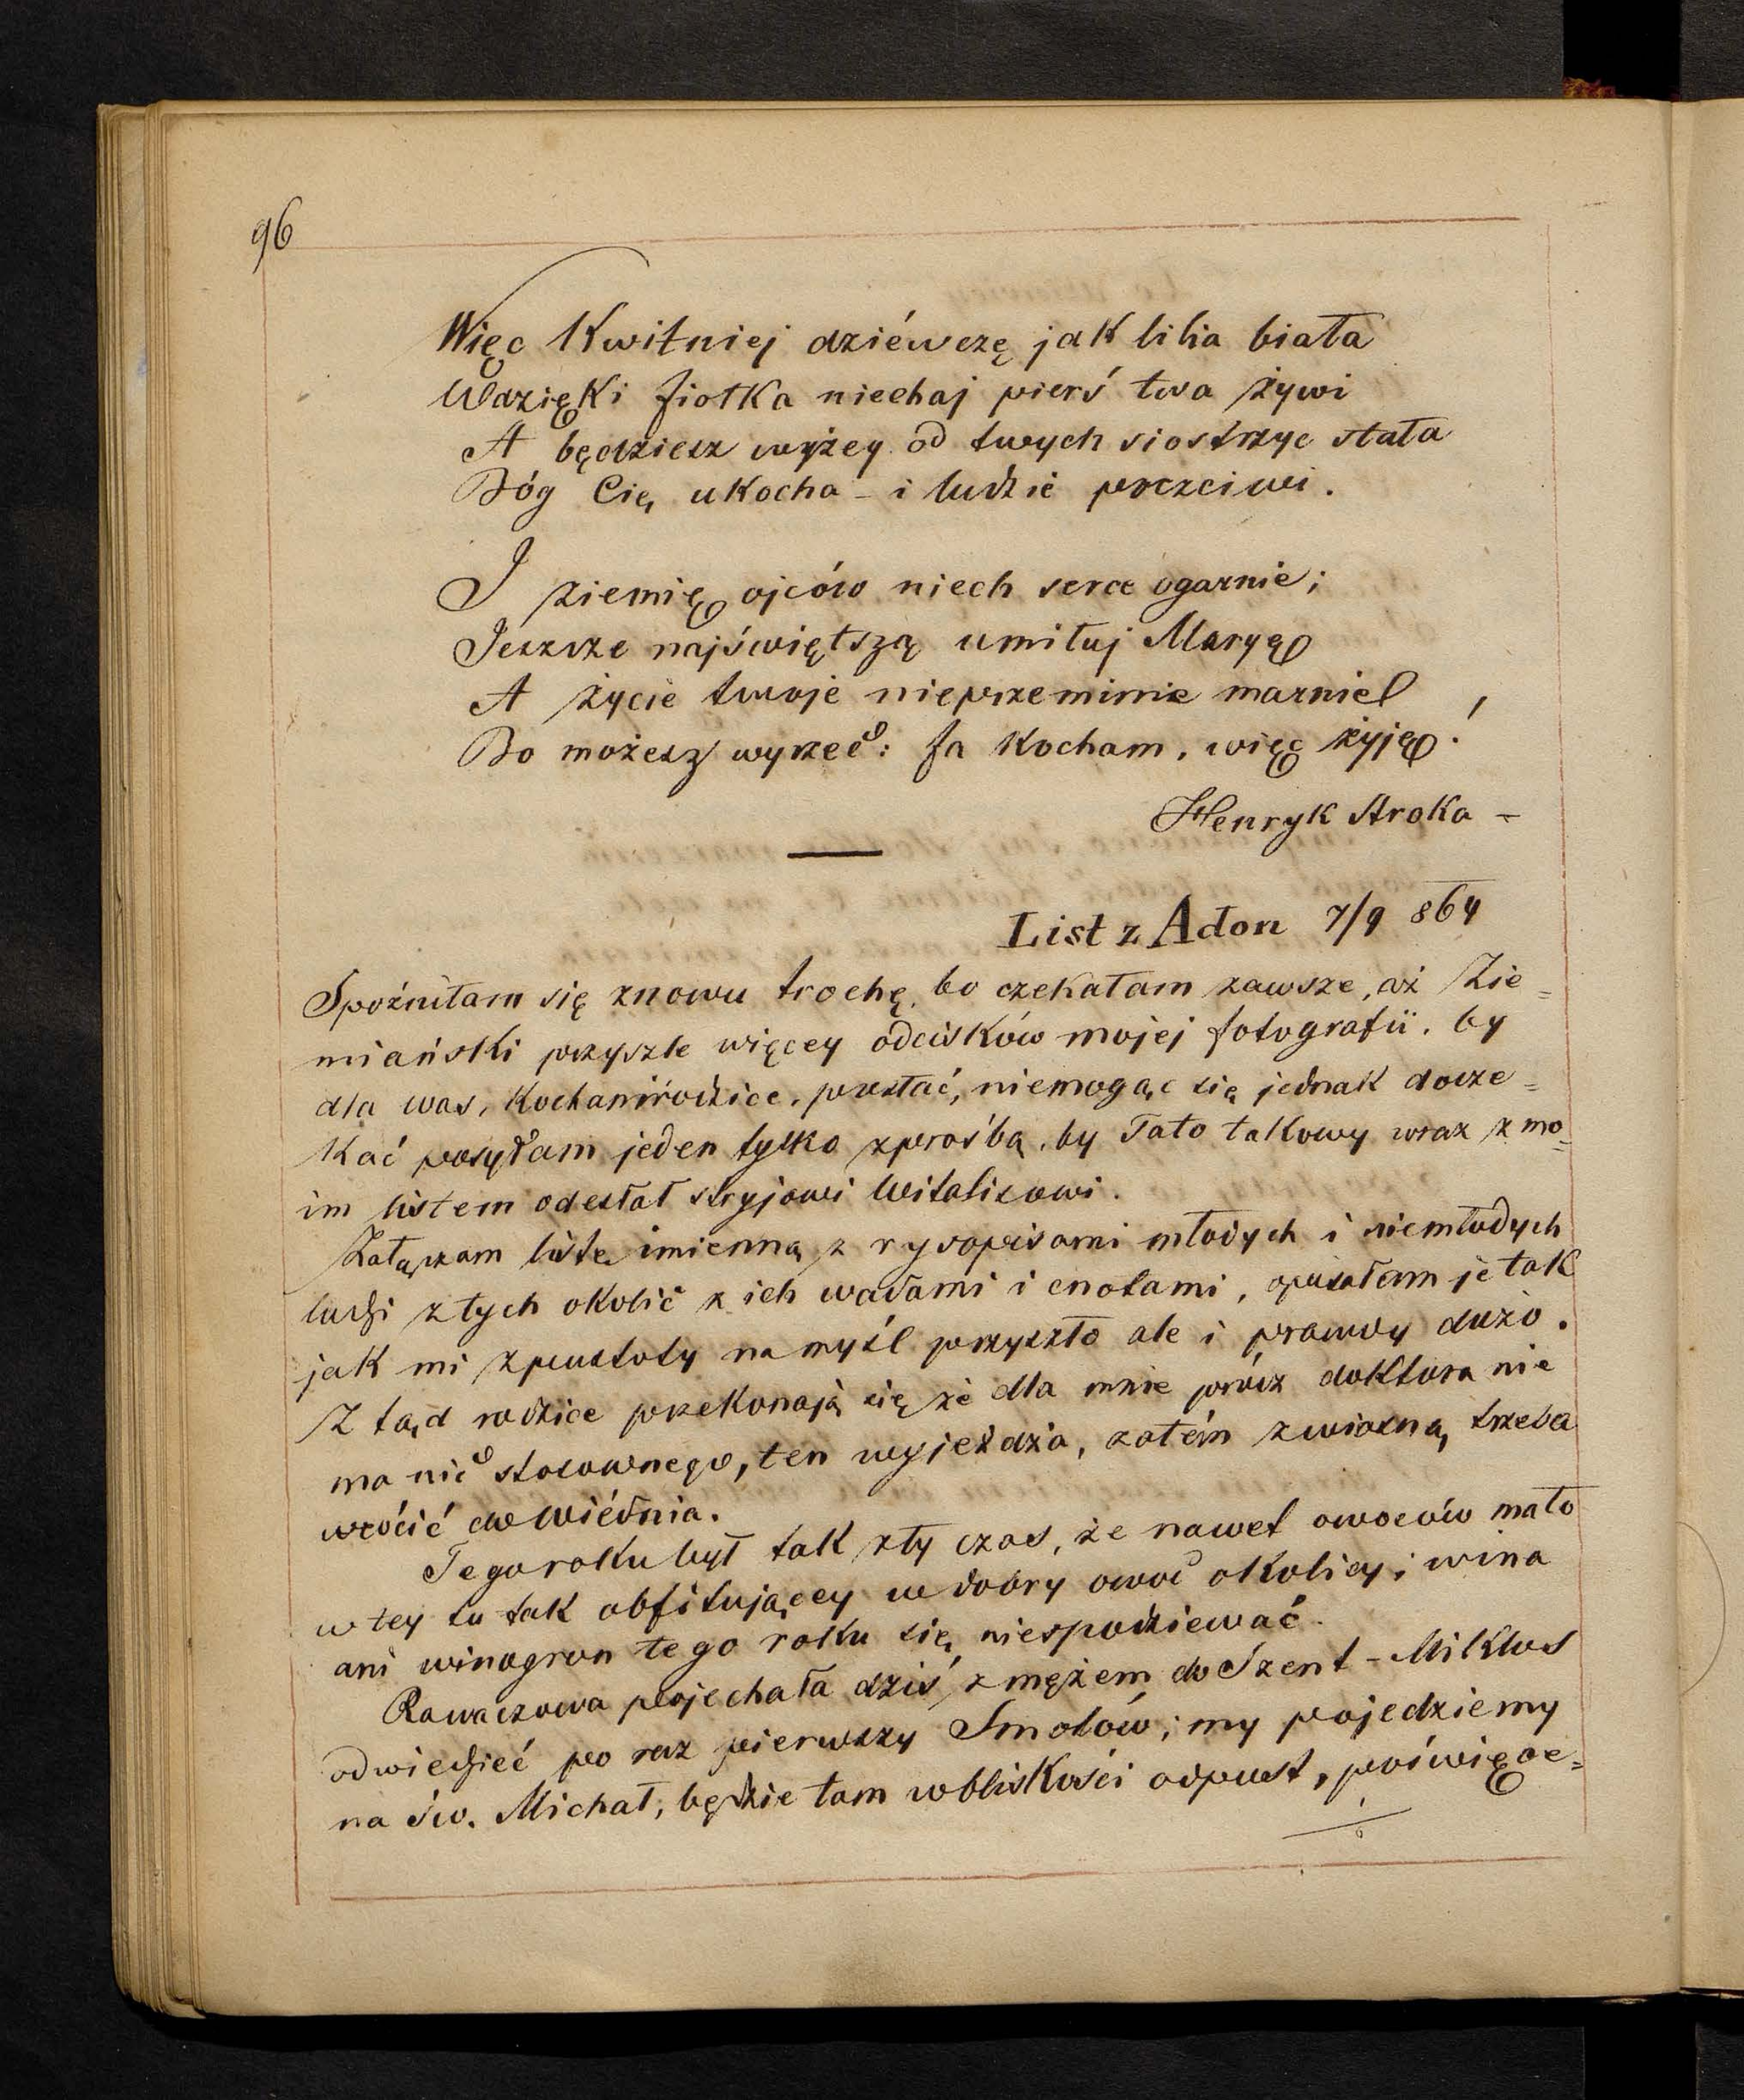 96
Więc Kwitniej dziéwczę jak lilia biała
Wdzięki fiołka niechaj pierś twa żywi
A będziesz wyżey od twych siostrzyc stała
Bóg Cię ukocha – i ludzie poczciwi.
I ziemię ojców niech serce ogarnie;
Jeszcze najświętszą umiłuj Maryę
A życie twoje nieprzeminie marnie
Bo możesz wyrzec: Ja Kocham, więc żyję!
Henryk Stroka –
List z Adon 7/9 864
Spoźniłam się znowu trochę, bo czekałam zawsze, aż Zie=
miański przyszle więcey odcisków mojej fotografii, by
dla was, Kochani rodzice, przesłać, niemogąc się jednak docze=
kać posyłam jeden tylko z prośbą, by Tato takowy wraz z mo=
im listem odesłał stryjowi Witalisowi.
Załączam listę imienną z rysopisami młodych i niemłodych
ludzi z tych okolic z ich wadami i cnotami, opisałam je tak
jak mi z pustoty na myśl przyszło ale i prawdy dużo.
Z tąd rodzice przekonają się że dla mnie prócz doktora nie
ma nic stosownego, ten wyjeżdża, zatém z wiosną trzeba
wrócić do Wiédnia.
Tego roku był tak zły czas, że nawet owoców mało
w tey tu tak obfitującey w dobry owoc okolicy; wina
ani winogron tego roku się niespodziewać.
Rawaczowa pojechała dziś z mężem do Szent-Miklos
odwiedzieć po raz pierwszy Smołów; my pojedziemy
na św. Michał, będzie tam w bliskości odpust, poświęce=